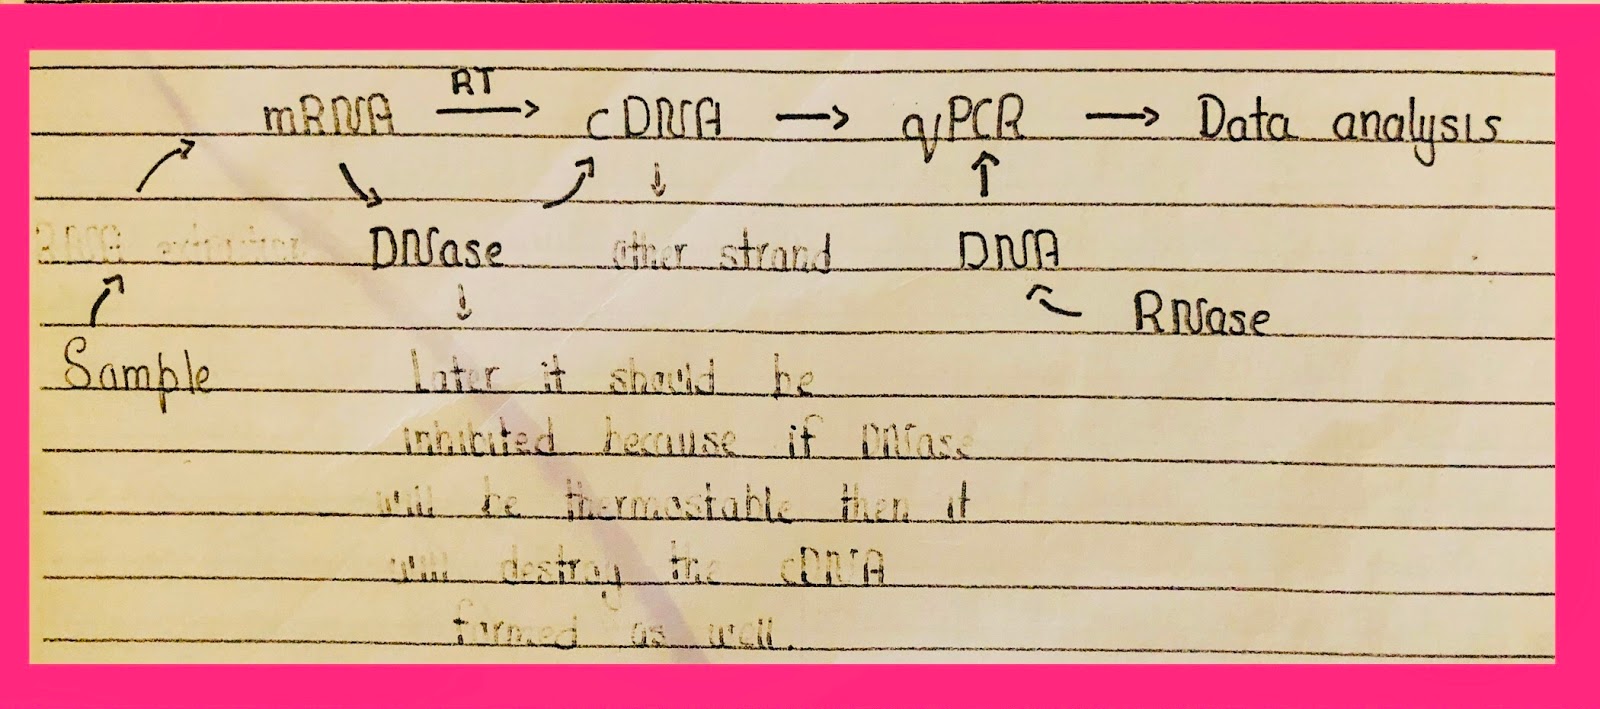 RT
mRNA → cDNA → qPCR → Data analysis
RNA DNase other strand DNA
RNase
Sample Later it should be
inhibited because if DNase
will be thermostable then it
will destroy the cDNA
formed as well.